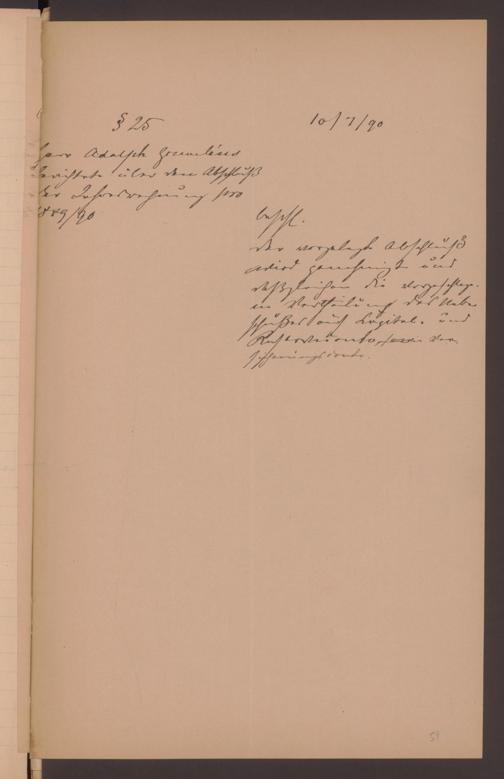 § 25
10/7/90
Herr Adolph
berichtete über den Abschluß
der Jahresrechnung pro
1889/90
beschl.
der vorgelegte Abschluß
wird genehmigt und
desgleichen die vorgeschlage-
ne Vertheilung des Ueber-
schußes auf Kapital- und
Reserveconto, Ver-
sicherungsconto.